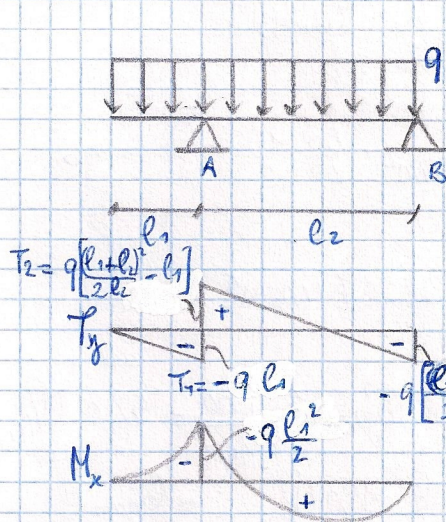 q
A B
l₁ l₂
T₂ = q[(l₁+l₂)²/2l₂ - l₁]
+
Ty - -
T₁ = -q l₁
-q[
-q l₁²/2
Mx - +